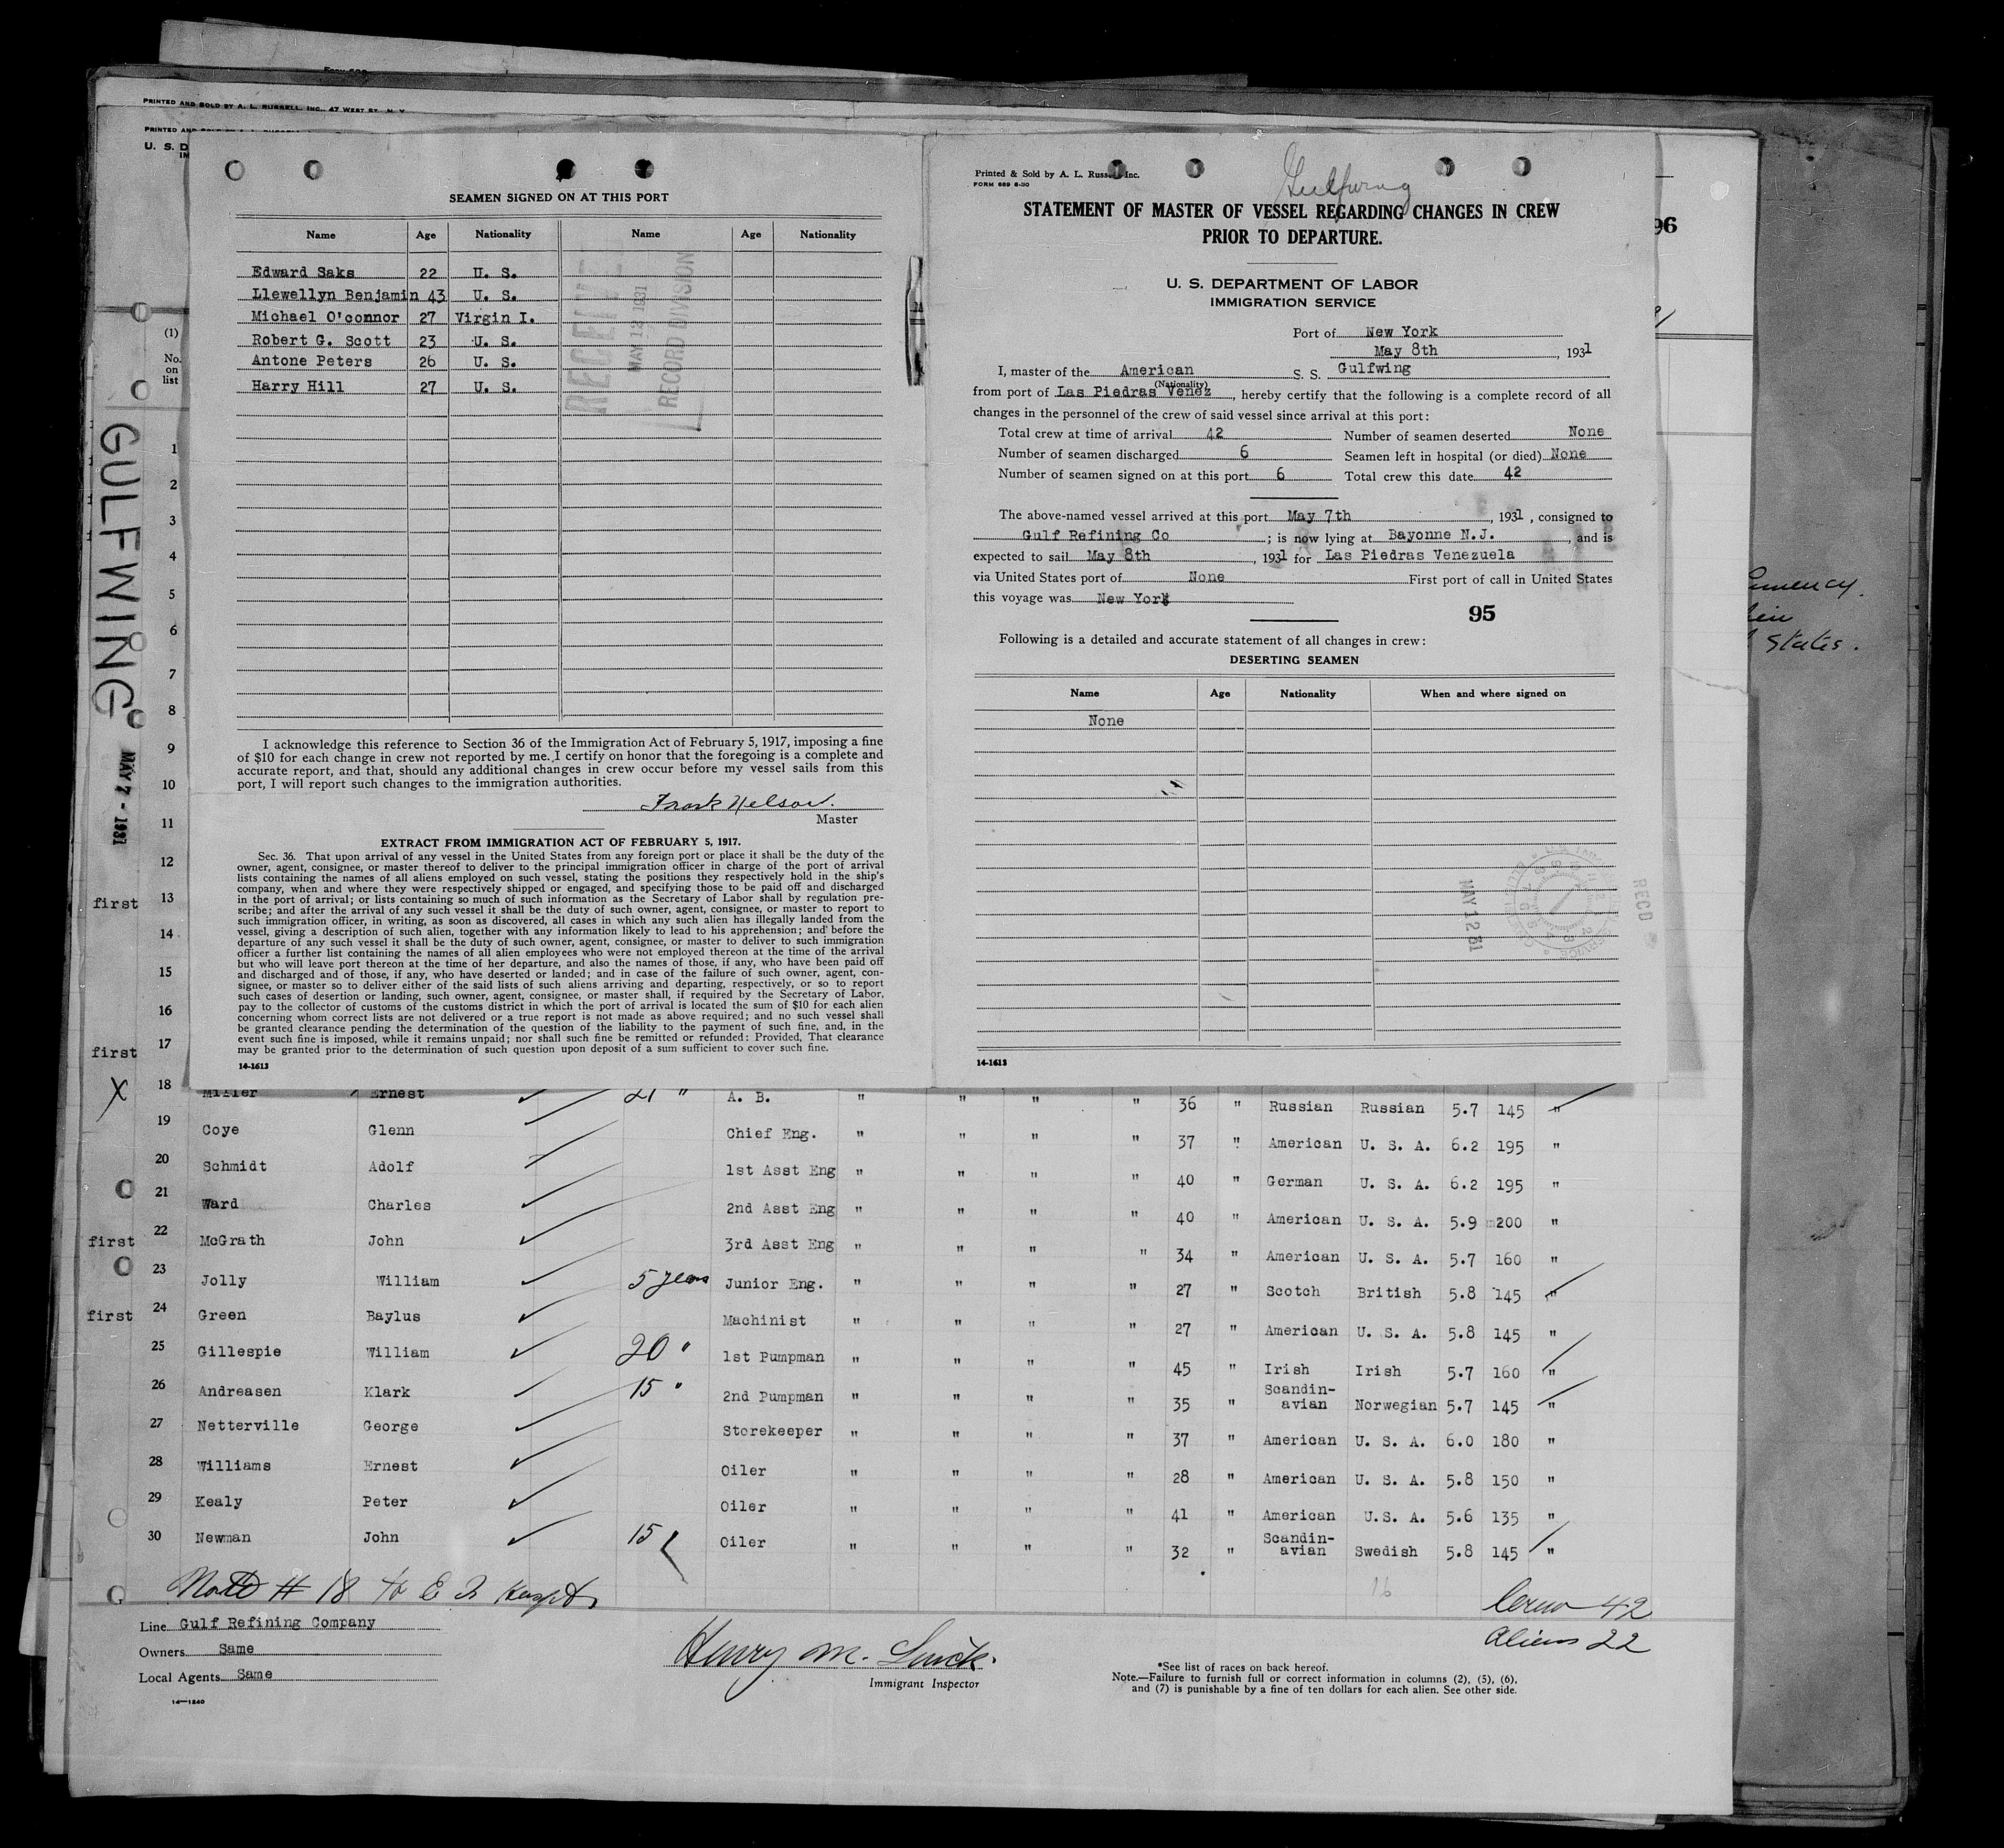 Form 689
PRINTED AND SOLD BY A. L. RUSSELL, INC., 47 WEST ST. N. Y.
PRINTED AND SOLD BY A. L. RUSSELL
U. S. D
IM
(1)
No.
on
list
GULFWING
MAY 7 - 1931
1
2
3
4
5
6
7
8
9
10
11
12
first 13
14
15
16
first 17
SEAMEN SIGNED ON AT THIS PORT
Name Age Nationality Name Age Nationality
Edward Saks 22 U. S.
Llewellyn Benjamin 43 U. S.
Michael O'connor 27 Virgin I.
Robert G. Scott 23 U. S.
Antone Peters 26 U. S.
Harry Hill 27 U. S.
RECEIVE
MAY 12 1931
RECORD DIVISION
I acknowledge this reference to Section 36 of the Immigration Act of February 5, 1917, imposing a fine
of $10 for each change in crew not reported by me. I certify on honor that the foregoing is a complete and
accurate report, and that, should any additional changes in crew occur before my vessel sails from this
port, I will report such changes to the immigration authorities.
Frank Nelson.
Master
EXTRACT FROM IMMIGRATION ACT OF FEBRUARY 5, 1917.
Sec. 36. That upon arrival of any vessel in the United States from any foreign port or place it shall be the duty of the
owner, agent, consignee, or master thereof to deliver to the principal immigration officer in charge of the port of arrival
lists containing the names of all aliens employed on such vessel, stating the positions they respectively hold in the ship's
company, when and where they were respectively shipped or engaged, and specifying those to be paid off and discharged
in the port of arrival; or lists containing so much of such information as the Secretary of Labor shall by regulation pre-
scribe; and after the arrival of any such vessel it shall be the duty of such owner, agent, consignee, or master to report to
such immigration officer, in writing, as soon as discovered, all cases in which any such alien has illegally landed from the
vessel, giving a description of such alien, together with any information likely to lead to his apprehension; and before the
departure of any such vessel it shall be the duty of such owner, agent, consignee, or master to deliver to such immigration
officer a further list containing the names of all alien employees who were not employed thereon at the time of the arrival
but who will leave port thereon at the time of her departure, and also the names of those, if any, who have been paid off
and discharged and of those, if any, who have deserted or landed; and in case of the failure of such owner, agent, con-
signee, or master so to deliver either of the said lists of such aliens arriving and departing, respectively, or so to report
such cases of desertion or landing, such owner, agent, consignee, or master shall, if required by the Secretary of Labor,
pay to the collector of customs of the customs district in which the port of arrival is located the sum of $10 for each alien
concerning whom correct lists are not delivered or a true report is not made as above required; and no such vessel shall
be granted clearance pending the determination of the question of the liability to the payment of such fine, and, in the
event such fine is imposed, while it remains unpaid; nor shall such fine be remitted or refunded: Provided, That clearance
may be granted prior to the determination of such question upon deposit of a sum sufficient to cover such fine.
14-1613
Gulfwing
Printed & Sold by A. L. Russell Inc.
FORM 689 6-30
STATEMENT OF MASTER OF VESSEL REGARDING CHANGES IN CREW
PRIOR TO DEPARTURE.
U. S. DEPARTMENT OF LABOR
IMMIGRATION SERVICE
Port of New York
May 8th, 1931
I, master of the American S. S. Gulfwing
(Nationality)
from port of Las Piedras Venez, hereby certify that the following is a complete record of all
changes in the personnel of the crew of said vessel since arrival at this port:
Total crew at time of arrival 42 Number of seamen deserted None
Number of seamen discharged 6 Seamen left in hospital (or died) None
Number of seamen signed on at this port 6 Total crew this date 42
The above-named vessel arrived at this port May 7th, 1931, consigned to
Gulf Refining Co; is now lying at Bayonne N.J., and is
expected to sail May 8th, 1931 for Las Piedras Venezuela
via United States port of None First port of call in United States
this voyage was New York
95
Following is a detailed and accurate statement of all changes in crew:
DESERTING SEAMEN
Name Age Nationality When and where signed on
None
MAY 12 31
RECD
14-1613
96
States.
X 18 Miller Ernest 21 " A. B. " " " " 36 " Russian Russian 5.7 145 "
19 Coye Glenn Chief Eng. " " " " 37 " American U. S. A. 6.2 195 "
20 Schmidt Adolf 1st Asst Eng " " " " 40 " German U. S. A. 6.2 195 "
21 Ward Charles 2nd Asst Eng " " " " 40 " American U. S. A. 5.9 200 "
first 22 McGrath John 3rd Asst Eng " " " " 34 " American U. S. A. 5.7 160 "
23 Jolly William 5 years Junior Eng. " " " " 27 " Scotch British 5.8 145 "
first 24 Green Baylus Machinist " " " " 27 " American U. S. A. 5.8 145 "
25 Gillespie William 20 " 1st Pumpman " " " " 45 " Irish Irish 5.7 160 "
26 Andreasen Klark 15 " 2nd Pumpman " " " " 35 " Scandin-avian Norwegian 5.7 145 "
27 Netterville George Storekeeper " " " " 37 " American U. S. A. 6.0 180 "
28 Williams Ernest Oiler " " " " 28 " American U. S. A. 5.8 150 "
29 Kealy Peter Oiler " " " " 41 " American U.S. A. 5.6 135 "
30 Newman John 15 Oiler " " " " 32 " Scandin-avian Swedish 5.8 145 "
# 18 to
16
Crew 42
Aliens 22
Line Gulf Refining Company
Owners Same
Local Agents Same
14-1240
Henry M.
Immigrant Inspector
*See list of races on back hereof.
Note.—Failure to furnish full or correct information in columns (2), (5), (6),
and (7) is punishable by a fine of ten dollars for each alien. See other side.